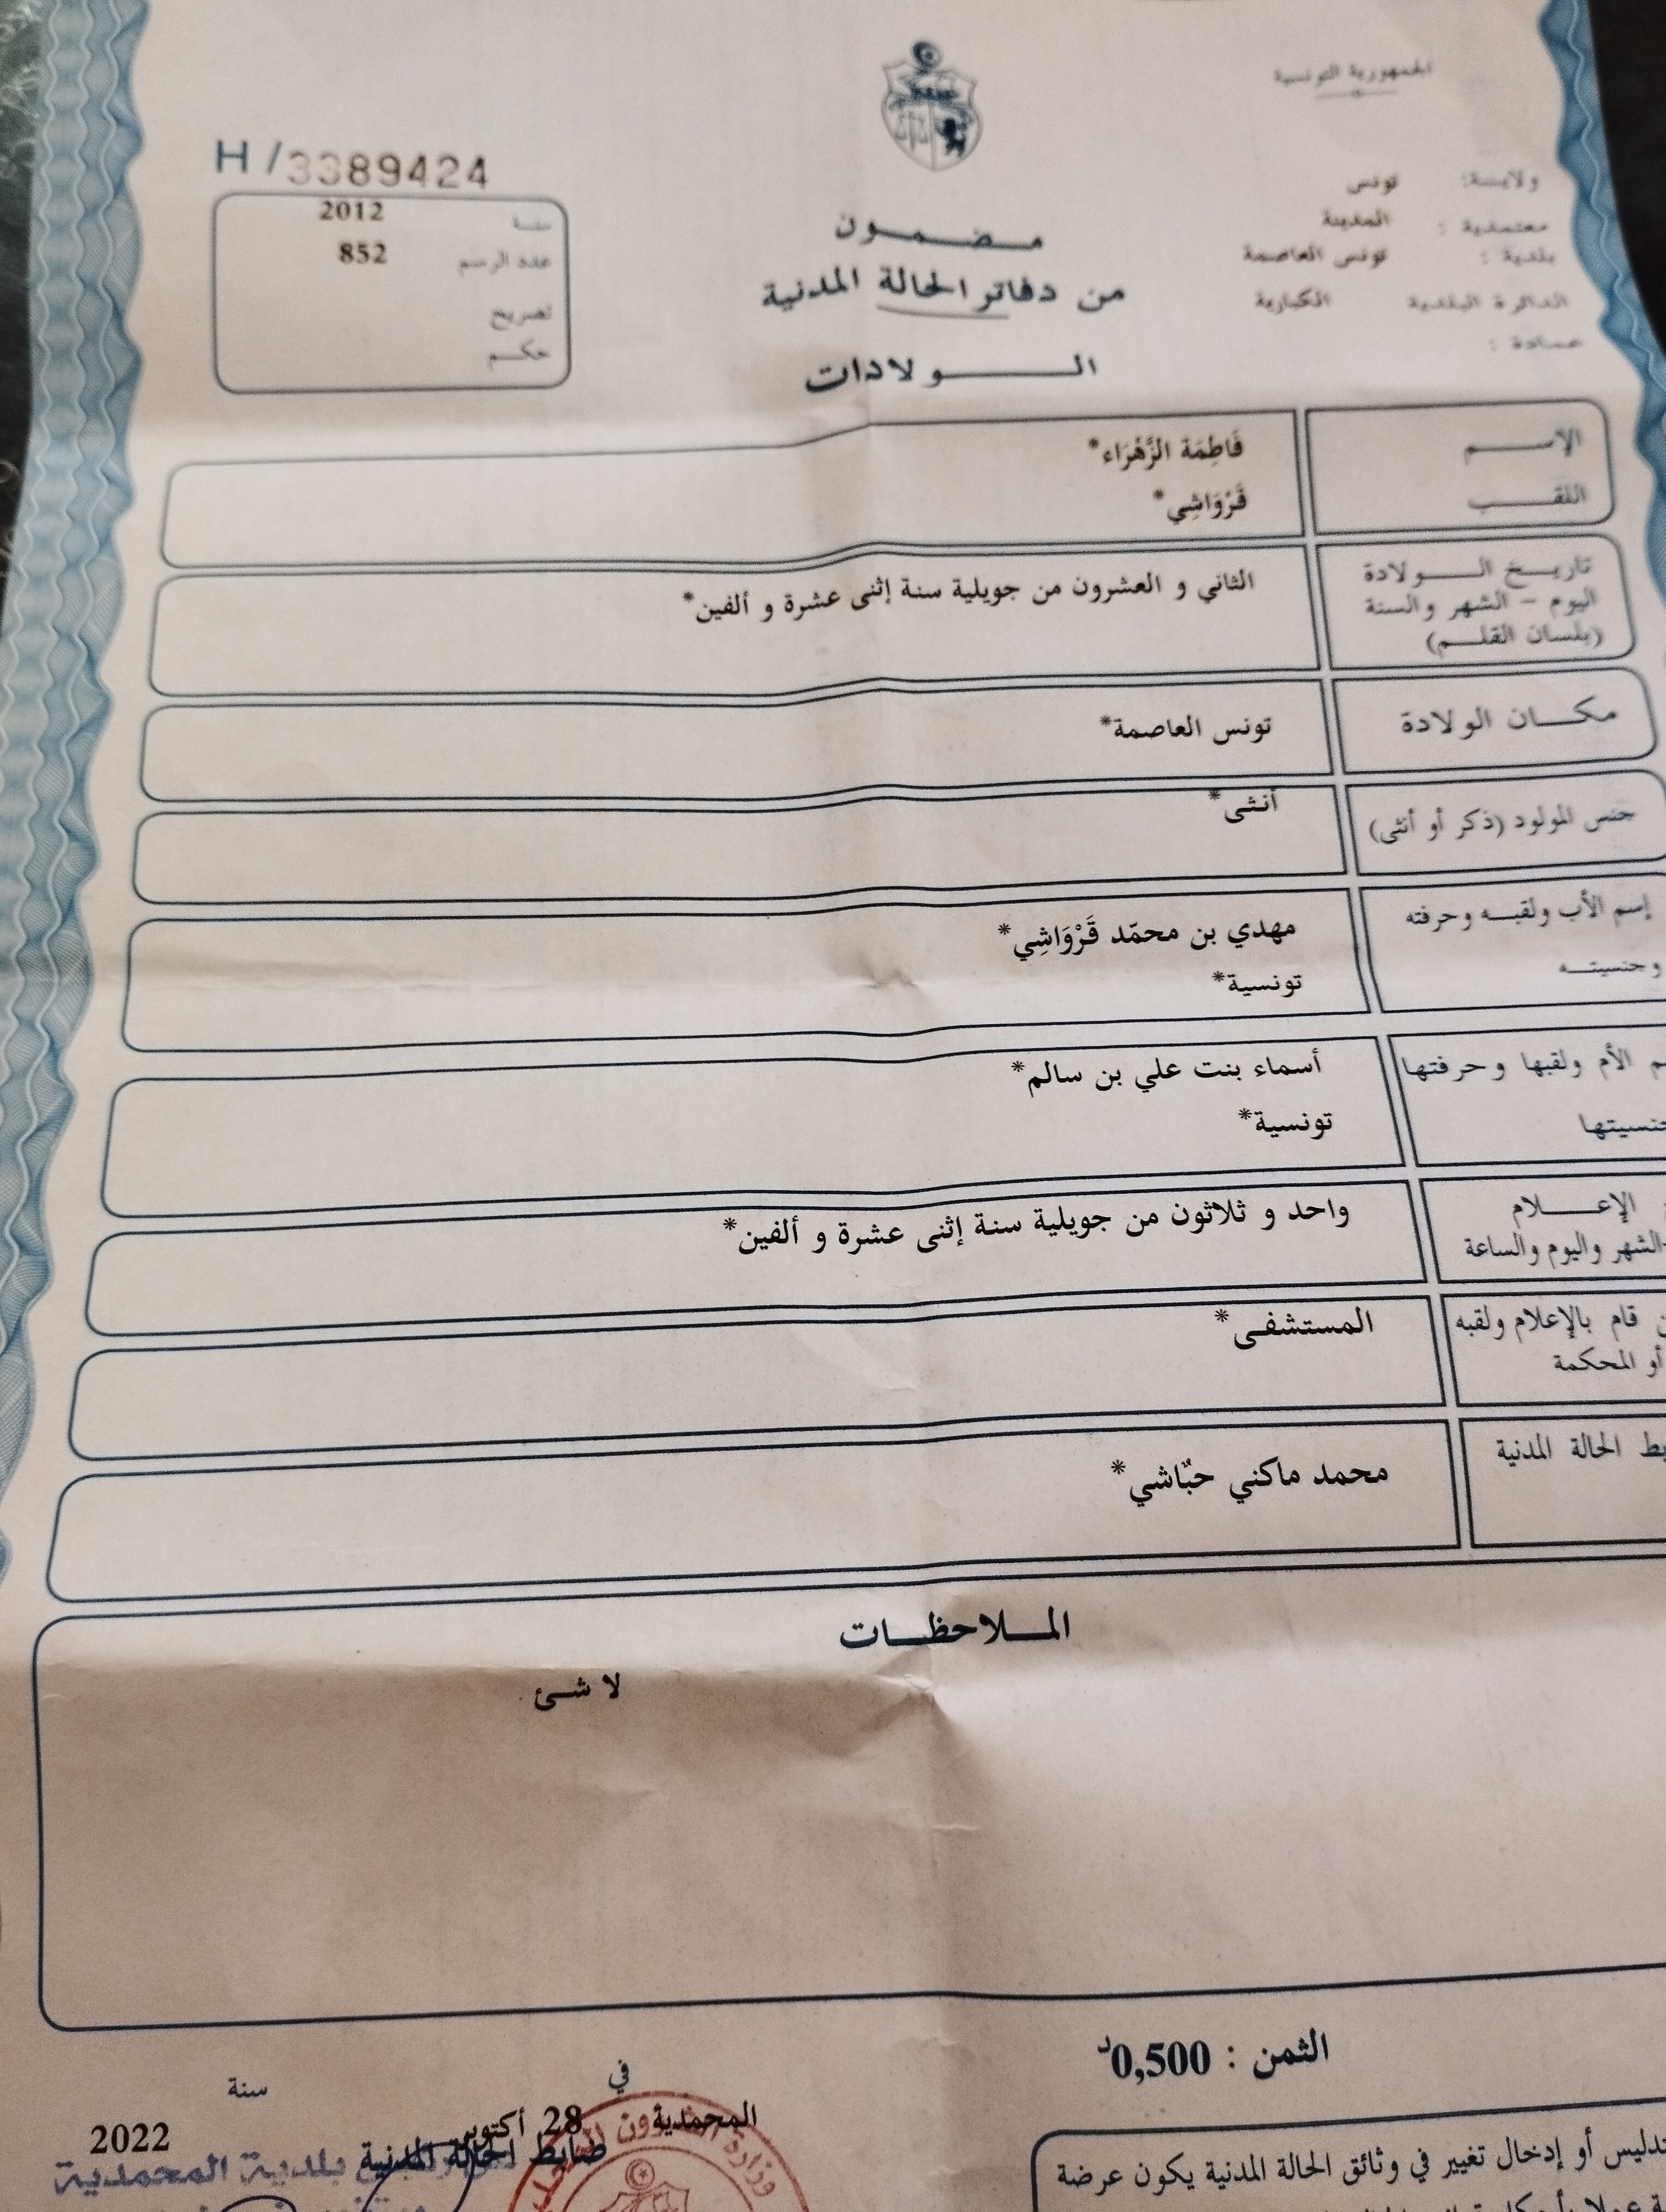 الجمهورية التونسية
H /3389424
ولاية: تونس
معتمدية : المدينة
بلدية : تونس العاصمة
الدائرة البلدية الكبارية
عمادة :
سنة 2012
عدد الرسم 852
تصريح
حكم
مضمون
من دفاتر الحالة المدنية
الولادات
الإسم فَاطِمَة الزَّهْرَاء*
اللقب قَرْوَاشِي*
تاريخ الولادة
اليوم – الشهر والسنة
(بلسان القلم)
الثاني و العشرون من جويلية سنة إثنى عشرة و ألفين*
مكان الولادة تونس العاصمة*
جنس المولود (ذكر أو أنثى) أنثى*
إسم الأب ولقبه وحرفته مهدي بن محمّد قَرْوَاشِي*
وجنسيته تونسية*
الأم ولقبها وحرفتها أسماء بنت علي بن سالم*
جنسيتها تونسية*
الإعلام
الشهر واليوم والساعة
واحد و ثلاثون من جويلية سنة إثنى عشرة و ألفين*
قام بالإعلام ولقبه المستشفى*
أو المحكمة
الحالة المدنية محمد ماكني حبّاشي*
الملاحظات
لا شئ
الثمن : 0,500د
في سنة
المحمدية 28 أكتوبر 2022
ضابط الحالة المدنية
بلدية المحمدية
تدليس أو إدخال تغيير في وثائق الحالة المدنية يكون عرضة